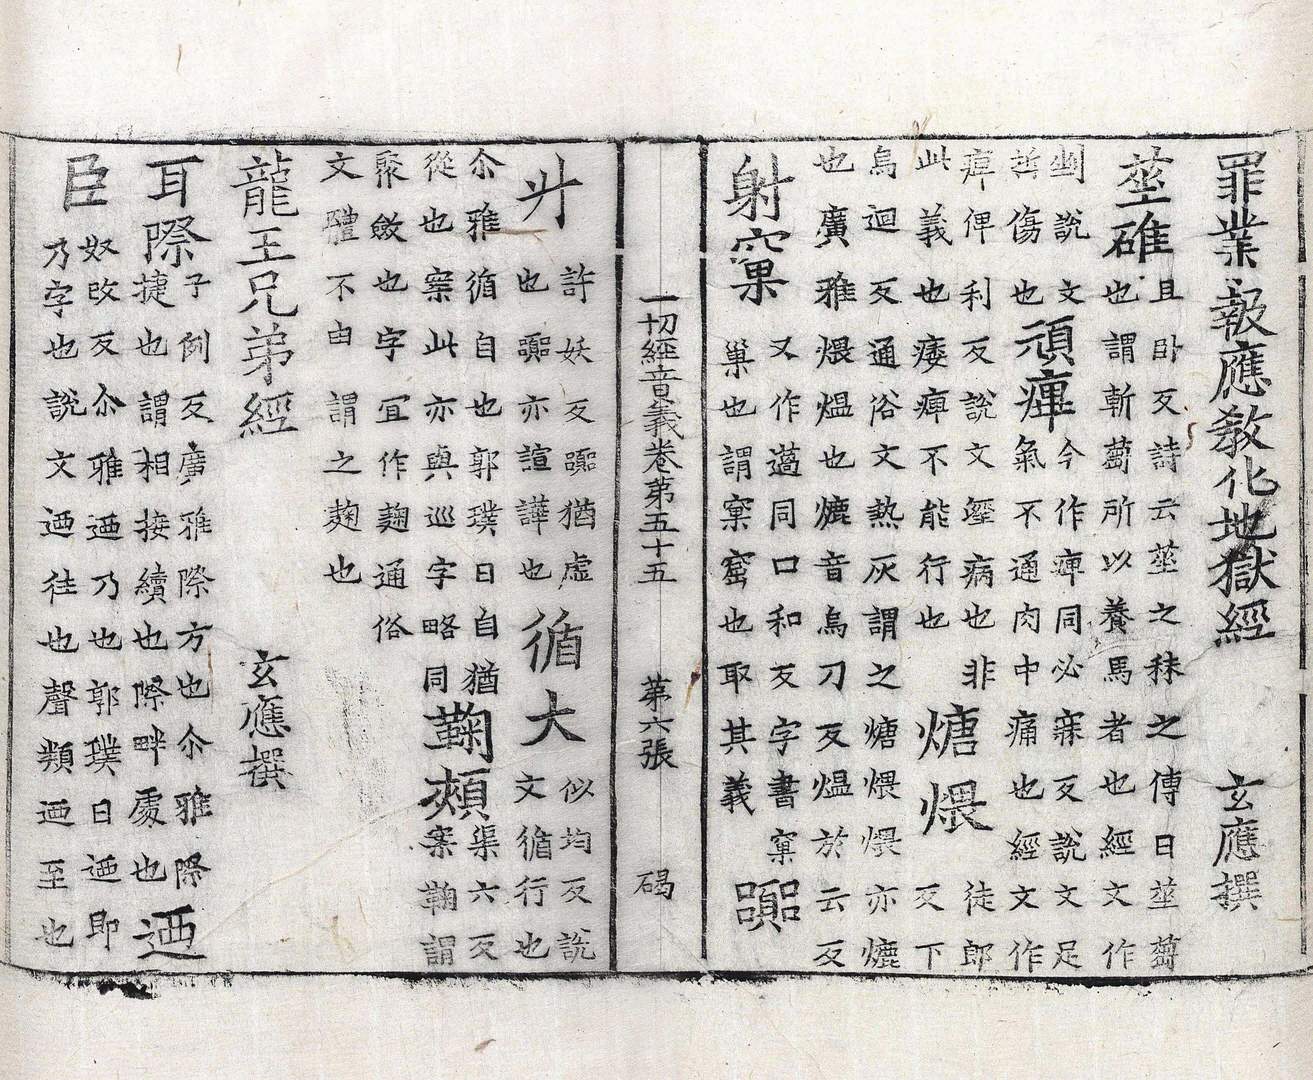 罪業報應教化地獄經 玄應撰
莝碓 且卧反詩云莝之秣之傳曰莝蒭
也謂斬蒭所以養馬者也經文作
剉說文
哲傷也
頑痺 今作痺同必寐反說文足
氣不通肉中痛也經文作
痺俾利反說文踁病也非
此義也痿痺不能行也
煻煨 徒郎
反下
烏迴反通俗文熱灰謂之煻煨煨亦爊
也廣雅煨熅也爊音烏刀反熅於云反
射窠 又作薖同口和反字書窠
巢也謂窠窟也取其義
嚻
一切經音義卷第五十五 第六張 碣
許妖反嚻猶虛
也嚻亦諠譁也
循大 似均反說
文循行也
尒雅循自也郭璞曰自猶
從也案此亦與巡字略同
鞠頰 渠六反
案鞠謂
聚斂也字冝作麹通俗
文軆不申謂之麹也
龍王兄弟經 玄應撰
耳際 子例反廣雅際方也尒雅際
捷也謂相接續也際畔處也
迺
臣 奴改反尒雅迺乃也郭璞曰迺即
乃字也說文迺往也聲類迺至也